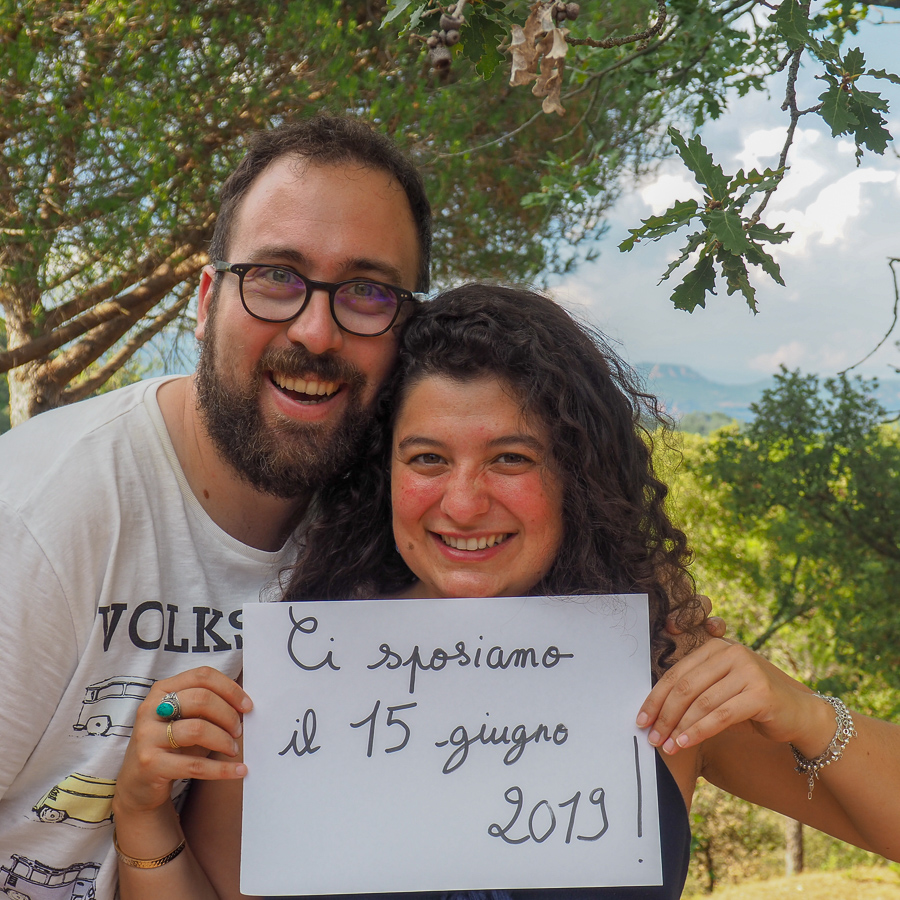 VOLKS
Ci sposiamo
il 15 giugno
2019!